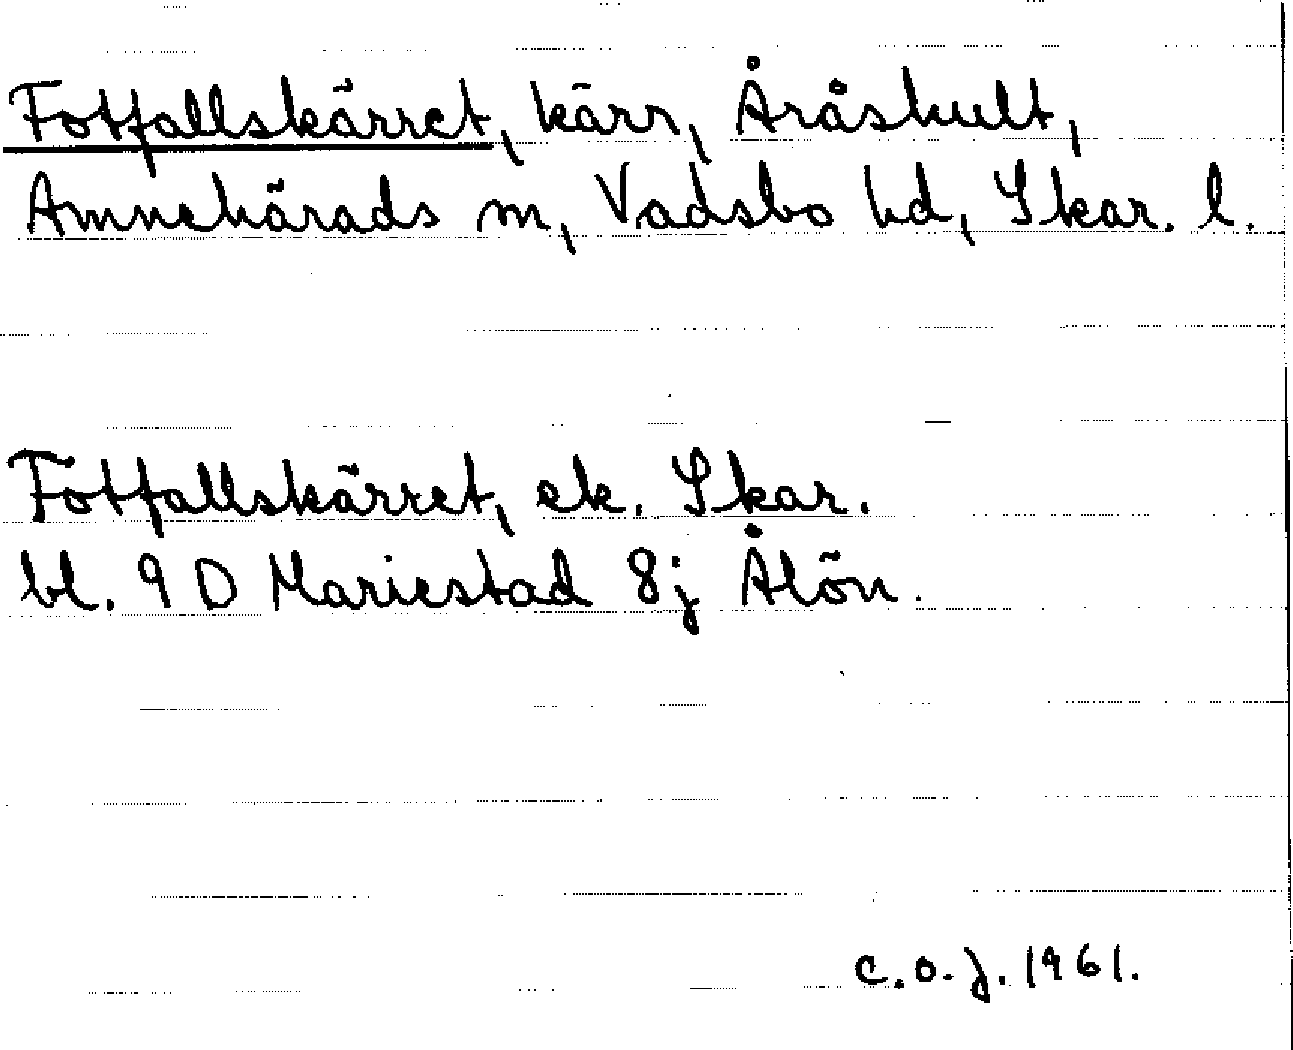 Fotfallskärret, kärr, Åråskult,
Amnehärads sn, Vadsbo hd, Skar. l.
Fotfallskärret, ek. Skar.
bl. 9 D Mariestad 8j Ålön.
C.O.J. 1961.